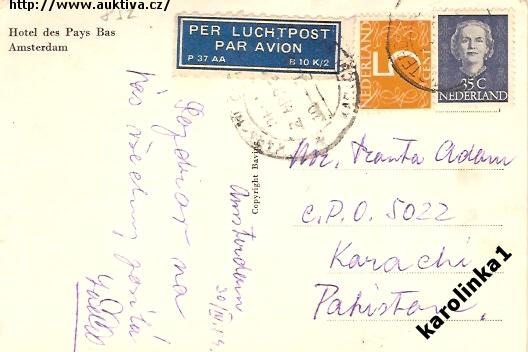 http://www.auktiva.cz/
832
Hotel des Pays Bas
Amsterdam
PER LUCHTPOST
PAR AVION
P 37 AA
B 10 K/2
NEDERLAND
5
CENT
35 C
NEDERLAND
Mr. Franta Adam
C.P.O. 5022
Karachi
Pakistan.
Copyright Baving
Amsterdam
Pozdrav na
Vás všechny posílá
karolinka1